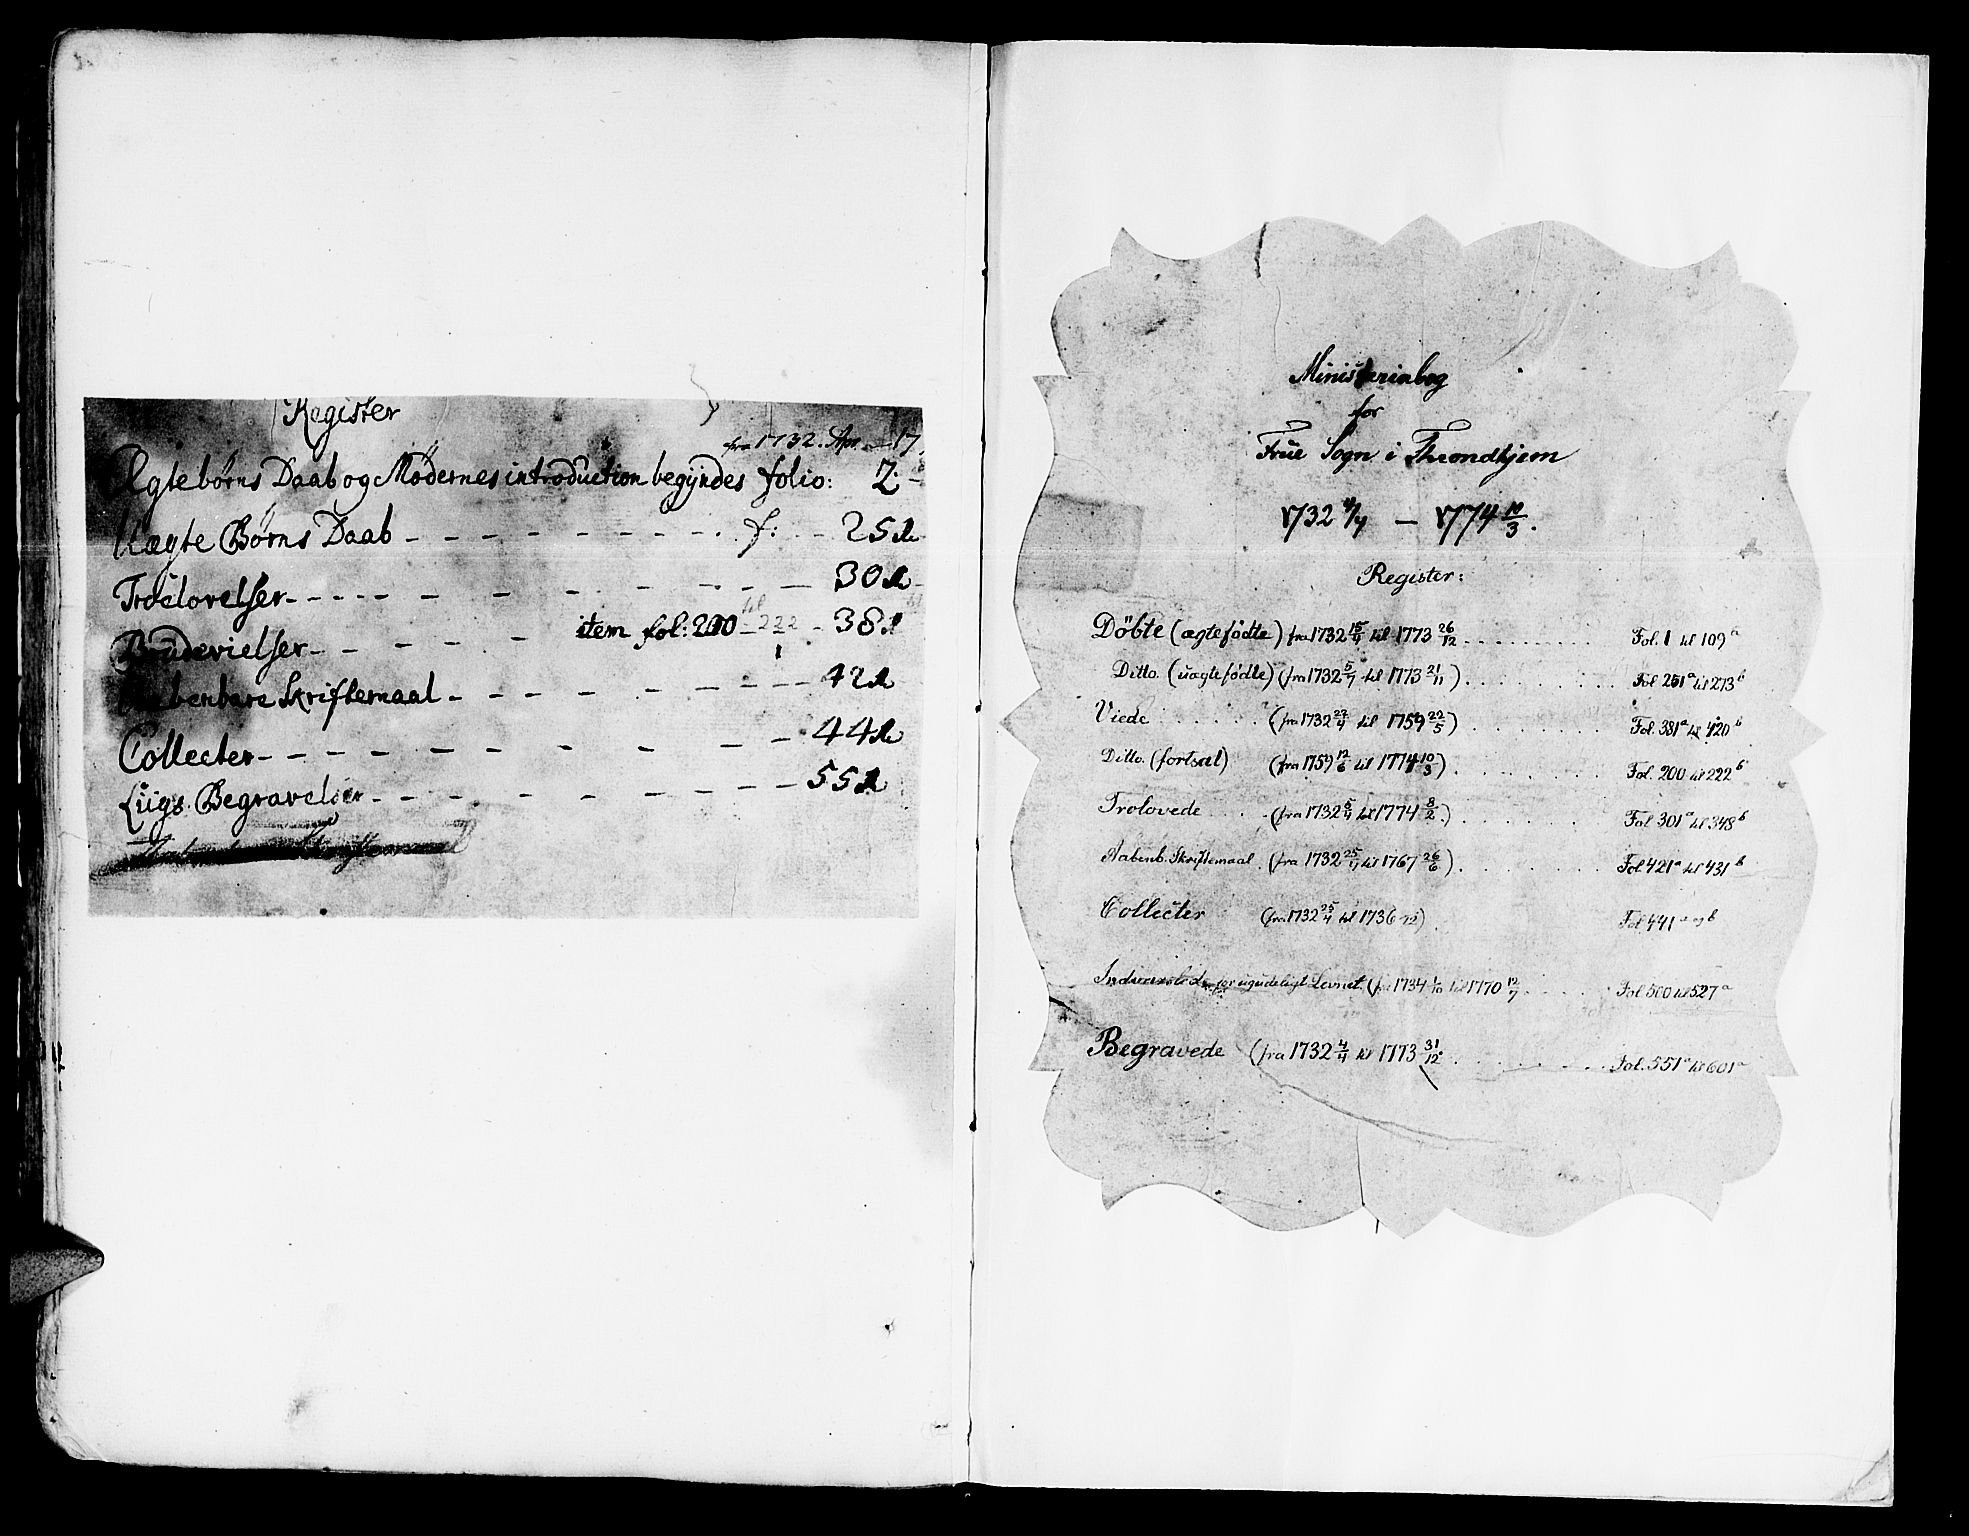 Register
fra 1732. Apr. – 17
Ægtebørns Daab og Mødernes introduction begÿndes folio: 2
Uægte Børns Daab – – – – – – – – f: – – 251.
Troelovelser – – – – – – – – – 301
Brudevielser – – – – item fol: 200 til 222 – 381
Aabenbare Skriftemaal – – – – – – – 421
Collecter – – – – – – – – 441
Liigs Begravelser – – – – – – – – 551
Ministerialbog
for
Frue Sogn i Throndhjem
1732 4/4 – 1774 10/3.
Register:
Döbte (ægtefødte) fra 1732 15/4 til 1773 26/12 . . . . . . Fol. 1 til 109 a
Ditto. (uægtefødte) (fra 1732 5/7 til 1773 21/11) . . . . . . Fol 251 a til 273 b
Viede . . . . . (fra 1732 22/4 til 1759 22/5) . . . . . . Fol. 381 a til 420 b
Ditto. (fortsat) (fra 1759 12/6 til 1774 10/3) . . . . . . Fol. 200 til 222 b
Trolovede . . . . (fra 1732 5/4 til 1774 8/2.) . . . . . . Fol 301 a til 348 b
Aabenb. Skriftemaal. (fra 1732 25/4 til 1767 26/6) . . . . . . Fol 421 a til 431 b
Collecter (fra 1732 25/4 til 1736 12) . Fol 441 a og b
for ugudeligt Levnet. (fra 1734 1/10 til 1770 12/7 . . . . . Fol 500 til 527 a
Begravede (fra 1732 4/4 til 1773 31/12 . . . . . . Fol. 551 a til 601 a